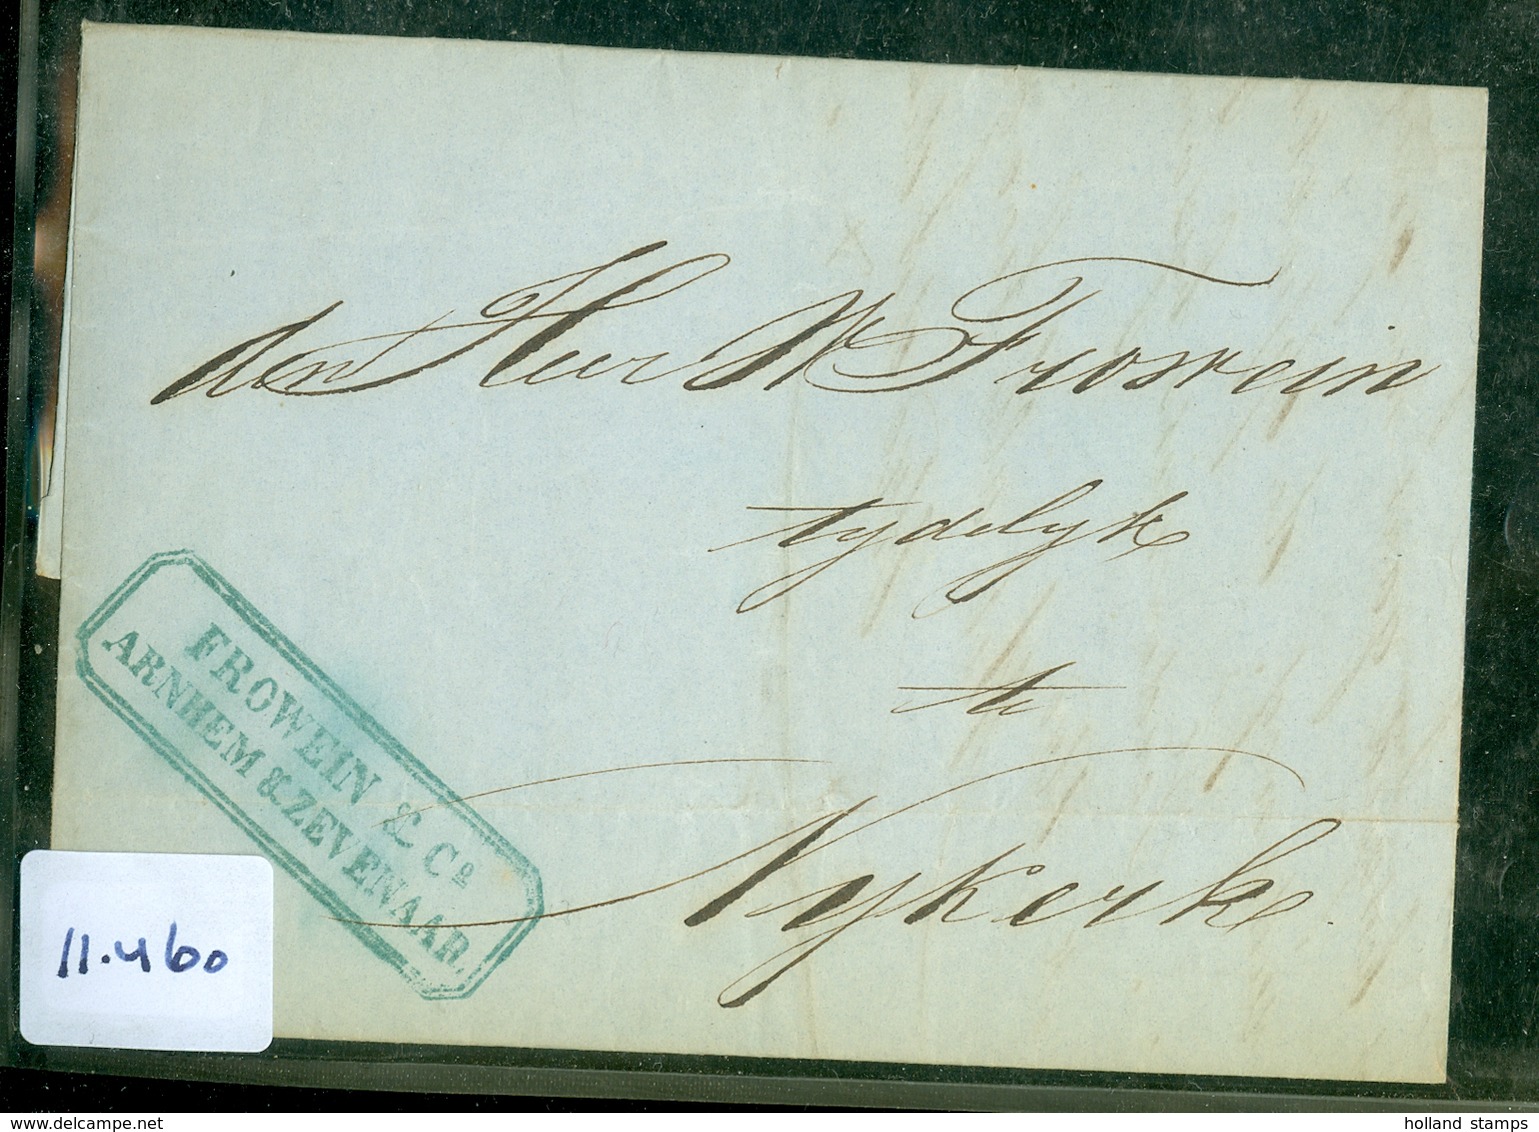 den Heer W Frowein
tydelyk
te
Nykerk.
FROWEIN & Cº
ARNHEM & ZEVENAAR.
11.460
delcampe.net
holland stamps